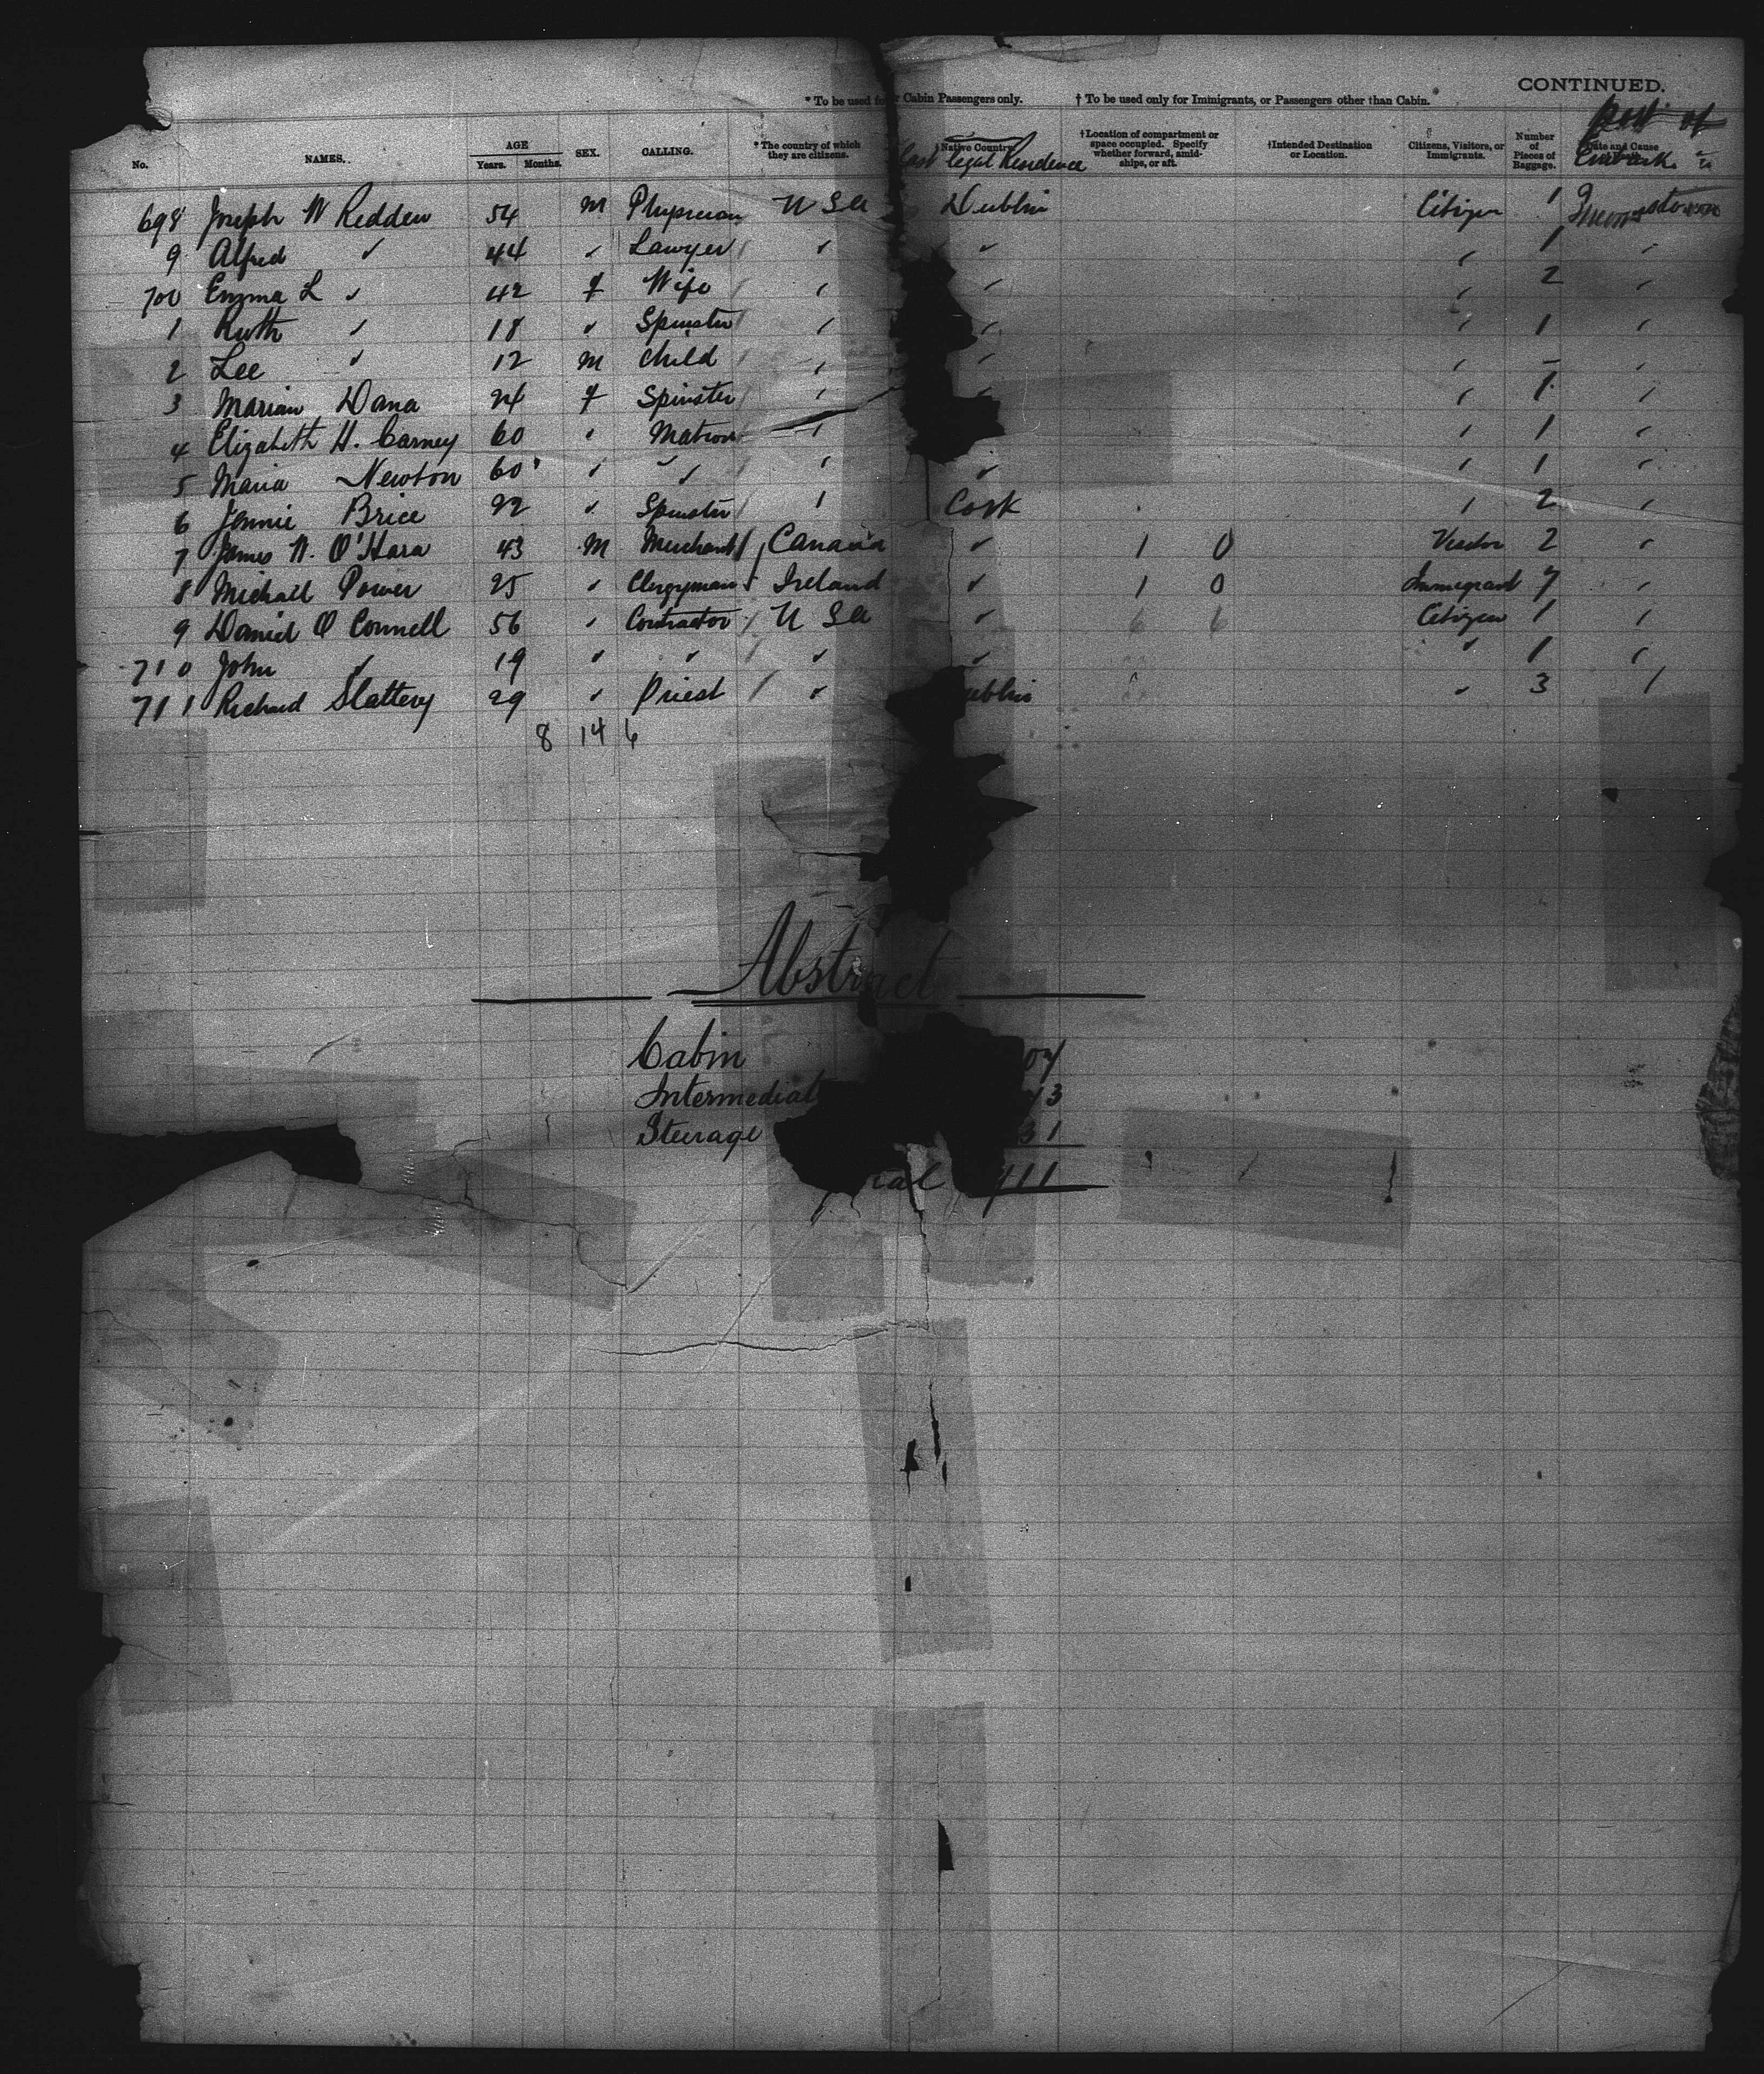 CONTINUED.
* To be used for Cabin Passengers only. † To be used only for Immigrants, or Passengers other than Cabin.
No. NAMES. AGE Years. Months. SEX. CALLING. * The country of which they are citizens. † Native Country. Last legal Residence † Location of compartment or space occupied. Specify whether forward, amidships, or aft. † Intended Destination or Location. Citizens, Visitors, or Immigrants. Number of Pieces of Baggage. Date and Cause Port of
698 Joseph W Redden 54 M Physician U Sa Dublin Citizen 1 Queenstown
9 Alfred " 44 " Lawyer " " " 1 "
700 Emma L " 42 f Wife " " " 2 "
1 Ruth " 18 " Spinster " " " 1 "
2 Lee " 12 M Child " " " - "
3 Marian Dana 24 f Spinster " " " 1 "
4 Elizabeth H. Carney 60 " Matron " " 1 "
5 Maria Newton 60 " " " " " 1 "
6 Jennie Brice 22 " Spinster " Cork " 2 "
7 James W. O'Hara 43 M Merchant Canada " 1 0 Visitor 2 "
8 Michael Power 25 " Clergyman Ireland " 1 0 Immigrant 7 "
9 Daniel O Connell 56 " Contractor U Sa " 6 6 Citizen 1 "
710 John " 19 " " " " " 1 "
711 Richard Slattery 29 " Priest " ublin " 3 "
8 14 6
Abstract
Cabin 04
Intermediat 3
Steerage 31
tal 711